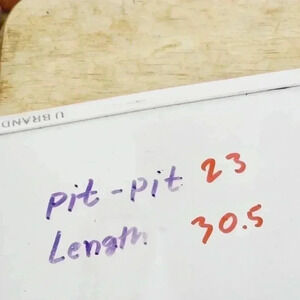 U BRAND
pit-pit 23
Length 30.5